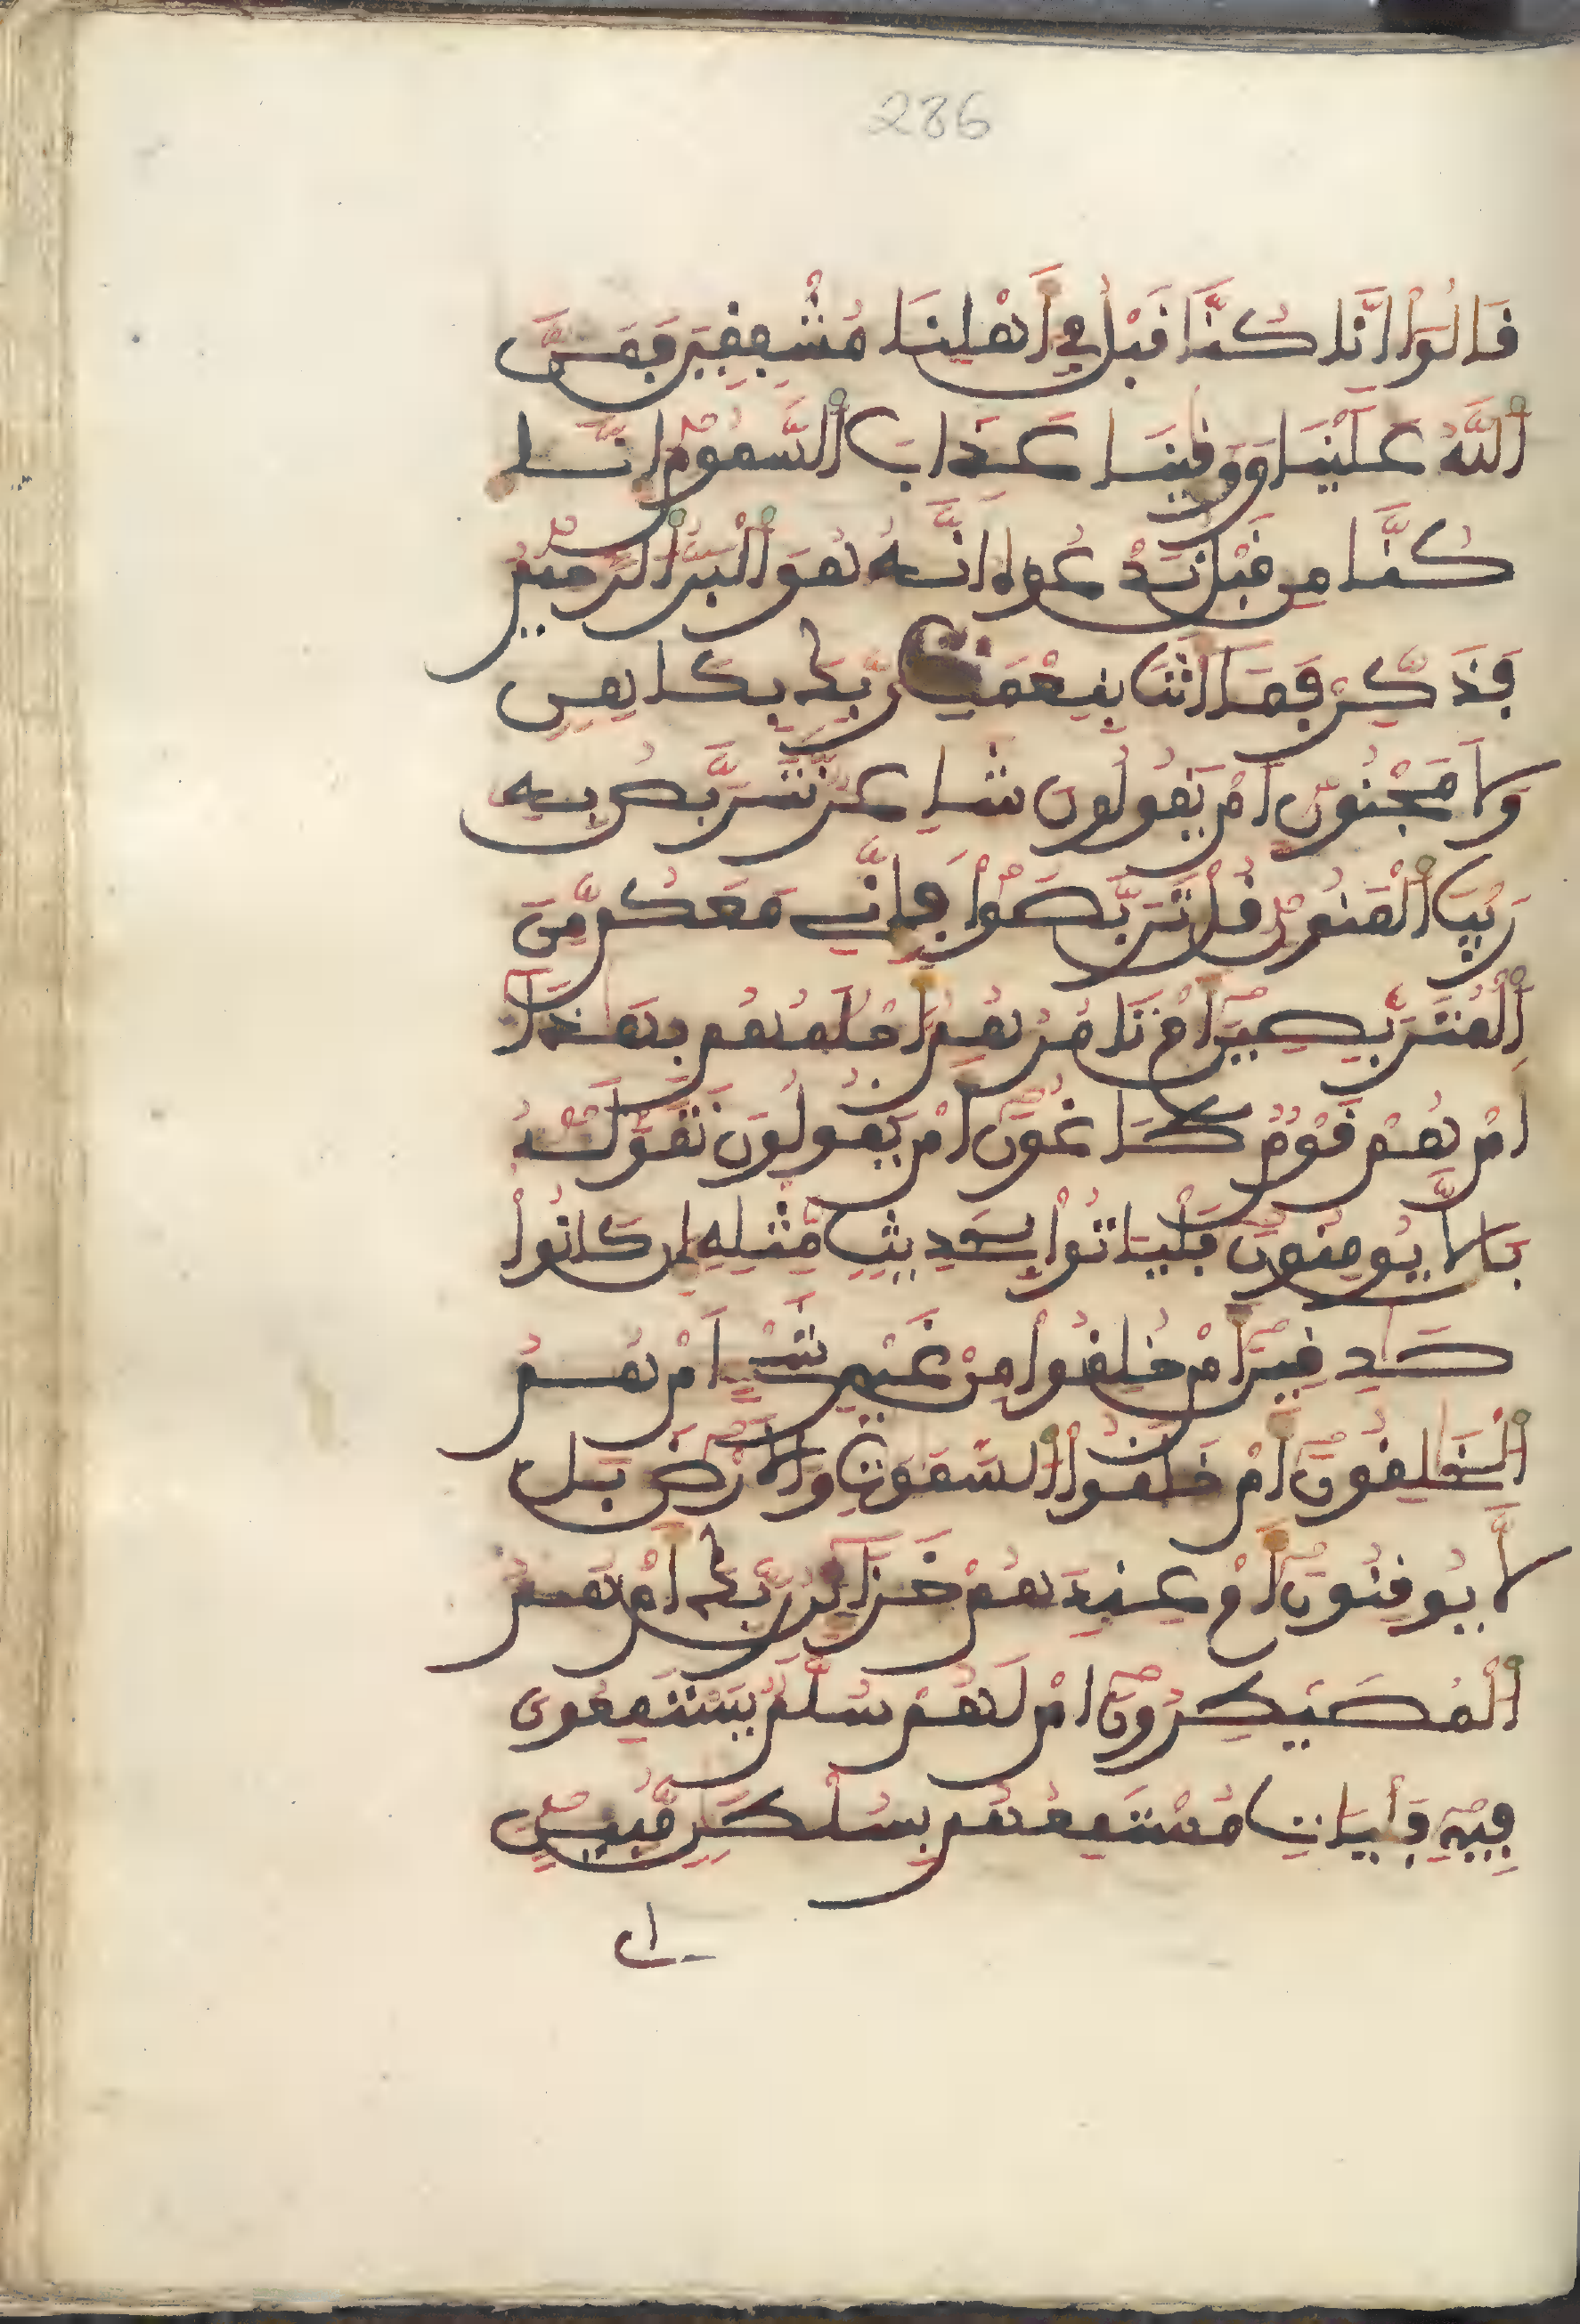 286
قَالُوٓاْ إِنَّا كُنَّا قَبْلُ فِىٓ أَهْلِنَا مُشْفِقِينَ فَمَنَّ
اَ۬للَّهُ عَلَيْنَا وَوَقَىٰنَا عَذَابَ اَ۬لسَّمُومِ إِنَّا
كُنَّا مِن قَبْلُ نَدْعُوهُ أَنَّهُۥ هُوَ اَ۬لْبَرُّ اُ۬لرَّحِيمُ
فَذَكِّرْ فَمَآ أَنتَ بِنِعْمَتِ رَبِّكَ بِكَاهِنٍ
وَلَا مَجْنُونٍ أَمْ يَقُولُونَ شَاعِرٌ نَّتَرَبَّصُ بِهِۦ
رَيْبَ اَ۬لْمَنُونِ قُلْ تَرَبَّصُواْ فَإِنِّى مَعَكُم مِّنَ
اَ۬لْمُتَرَبِّصِينَ أَمْ تَامُرُهُمُۥٓ أَحْلَٰمُهُم بِهَٰذَآ
أَمْ هُمْ قَوْمٌ طَاغُونَ أَمْ يَقُولُونَ تَقَوَّلَهُۥ
بَل لَّا يُومِنُونَ فَلْيَاتُواْ بِحَدِيثٍ مِّثْلِهِۦٓ إِن كَانُواْ
صَٰدِقِينَ أَمْ خُلِقُواْ مِنْ غَيْرِ شَىْءٍ أَمْ هُمُ
اُ۬لْخَٰلِقُونَ أَمْ خَلَقُواْ اُ۬لسَّمَٰوَٰتِ وَالَارْضَ بَل
لَّا يُوقِنُونَ أَمْ عِندَهُمْ خَزَآئِنُ رَبِّكَ أَمْ هُمُ
اُ۬لْمُصَۜيْطِرُونَ أَمْ لَهُمْ سُلَّمٌ يَسْتَمِعُونَ
فِيهِ فَلْيَاتِ مُسْتَمِعُهُم بِسُلْطَٰنٍ مُّبِينٍ